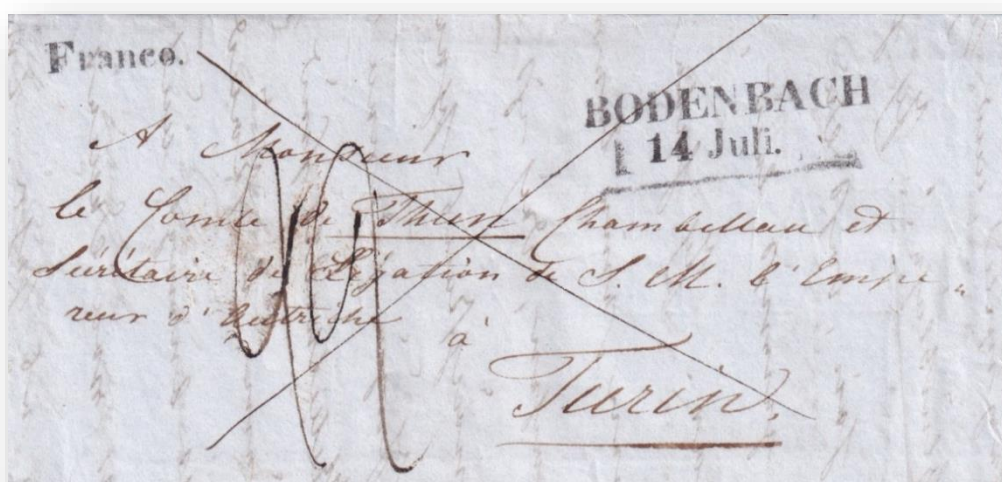 Franco.
BODENBACH
14 Juli.
A Monsieur
le Comte de Thun Chambellan et
Secrétaire de Légation de S. M. l'Empe„
reur d'Autriche
à
Turin.